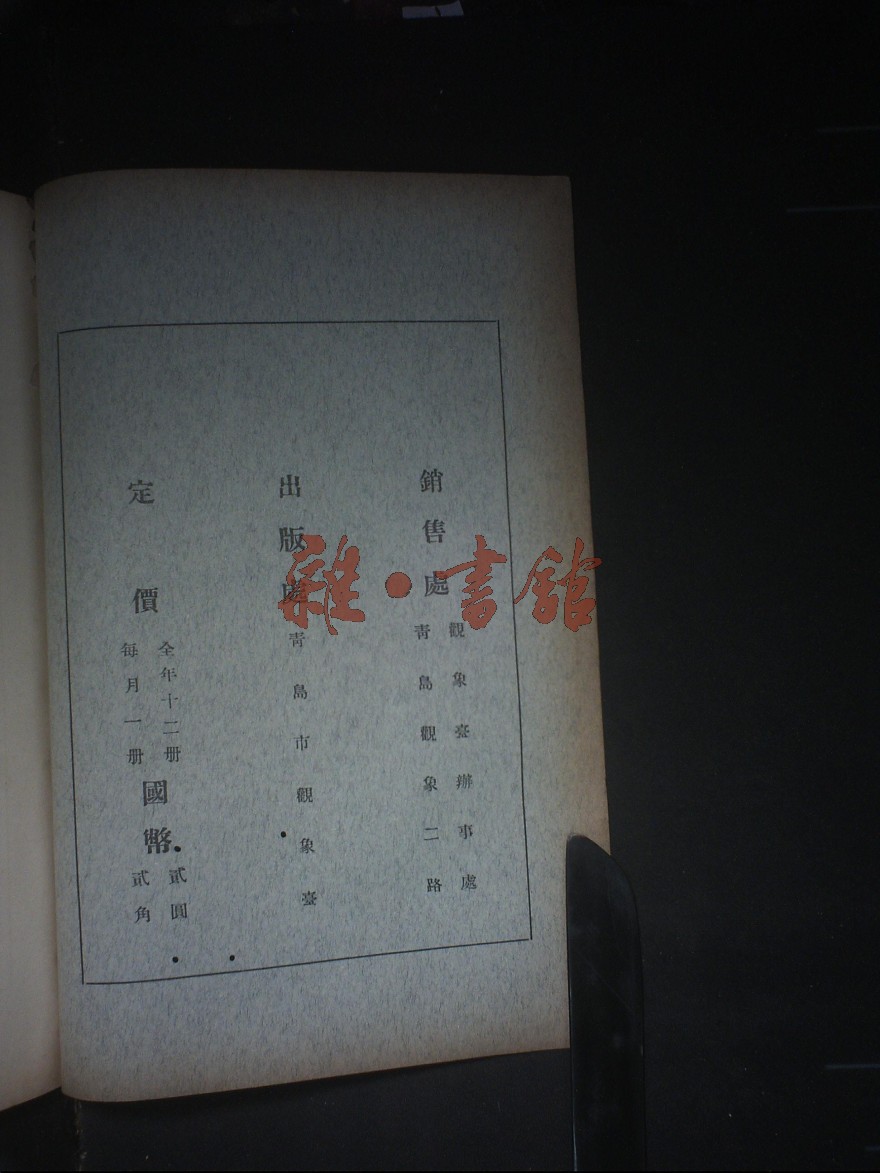 銷售處
觀象臺辦事處
青島觀象二路
出版處
青島市觀象臺
定價
全年十二册
每月一册
國幣
貳圓
貳角
雜·書館